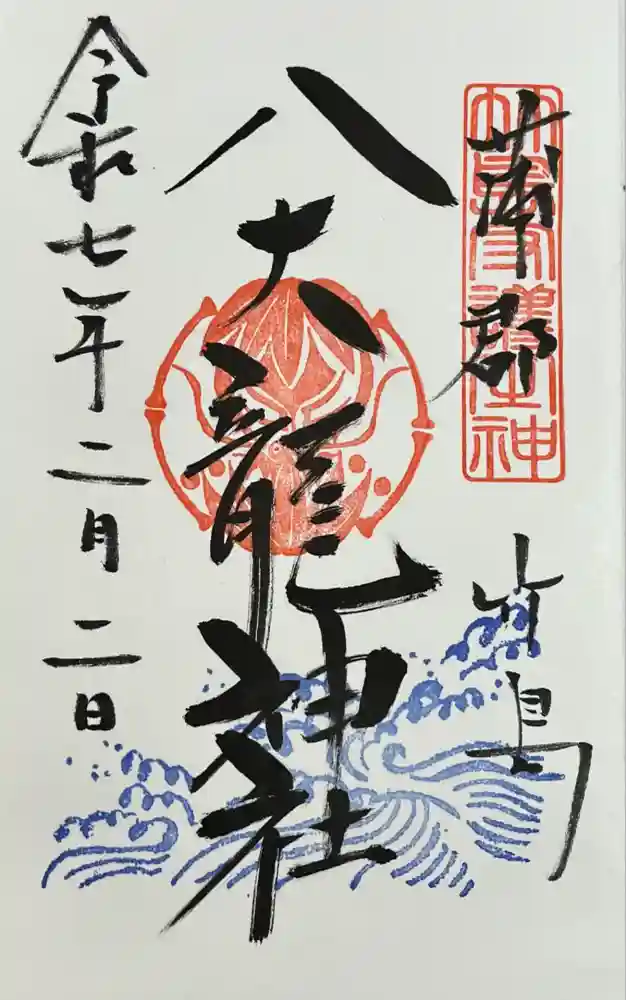 蒲郡
竹島
竹島守護神
八大龍神社
令和七年二月二日